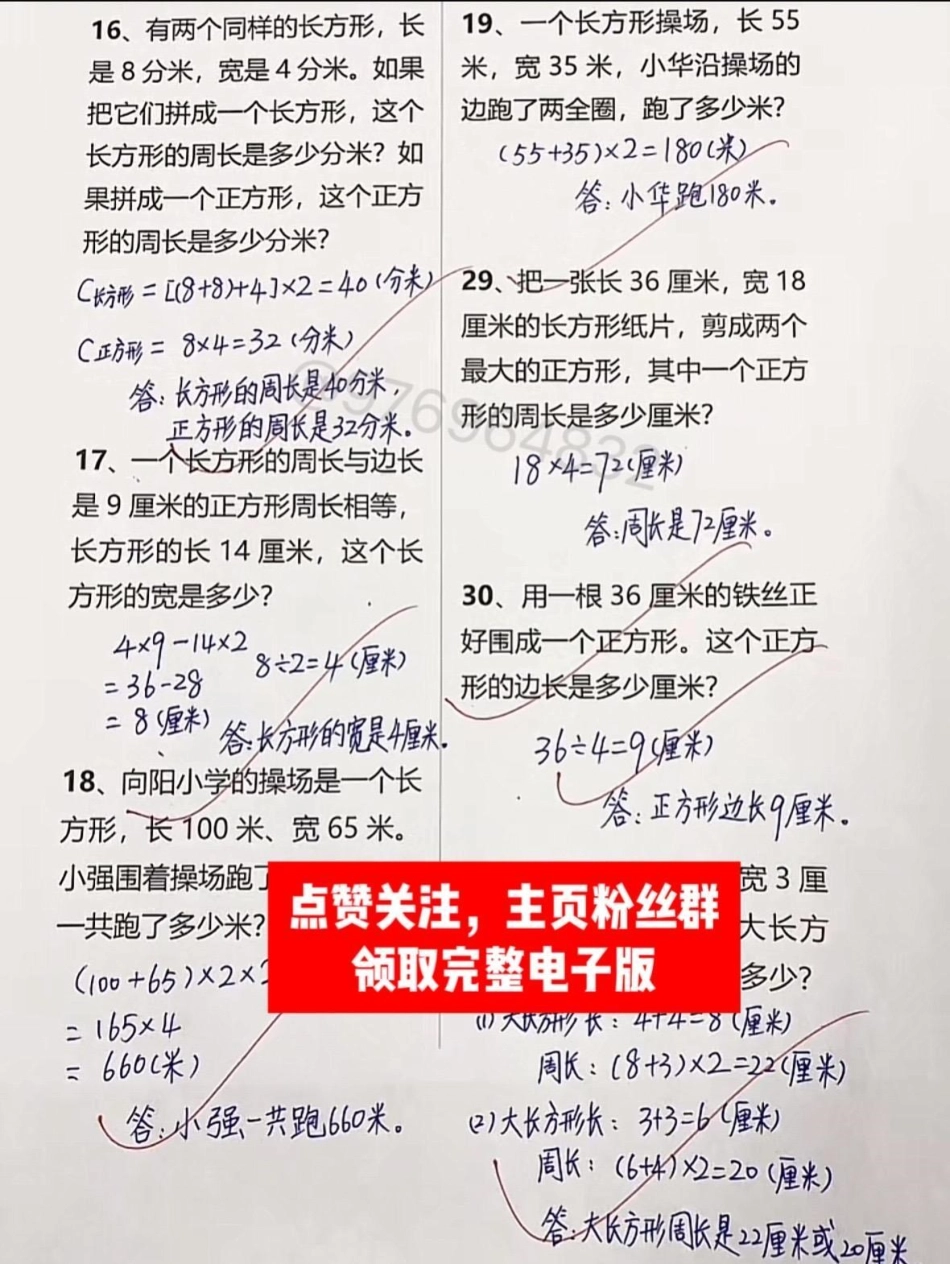 16、有两个同样的长方形，长
是8分米，宽是4分米。如果
把它们拼成一个长方形，这个
长方形的周长是多少分米？如
果拼成一个正方形，这个正方
形的周长是多少分米？
C长方形=[(8+8)+4]×2=40(分米)
C正方形= 8×4=32(分米)
答：长方形的周长是40分米，
正方形的周长是32分米。
17、一个长方形的周长与边长
是9厘米的正方形周长相等，
长方形的长14厘米，这个长
方形的宽是多少？
4×9-14×2
=36-28
=8(厘米)
8÷2=4(厘米)
答：长方形的宽是4厘米.
18、向阳小学的操场是一个长
方形，长100米、宽65米。
小强围着操场跑了
一共跑了多少米？
(100+65)×2×2
=165×4
=660(米)
答：小强一共跑660米。
19、一个长方形操场，长55
米，宽35米，小华沿操场的
边跑了两全圈，跑了多少米？
(55+35)×2=180(米)
答：小华跑180米。
29、把一张长36厘米，宽18
厘米的长方形纸片，剪成两个
最大的正方形，其中一个正方
形的周长是多少厘米？
18×4=72(厘米)
答：周长是72厘米。
30、用一根36厘米的铁丝正
好围成一个正方形。这个正方
形的边长是多少厘米？
36÷4=9(厘米)
答：正方形边长9厘米。
宽3厘
大长方
多少？
(1)大长方形长：4+4=8(厘米)
周长：(8+3)×2=22(厘米)
(2)大长方形长：3+3=6(厘米)
周长：(6+4)×2=20(厘米)
答：大长方形周长是22厘米或20厘米
点赞关注，主页粉丝群
领取完整电子版
@976964832